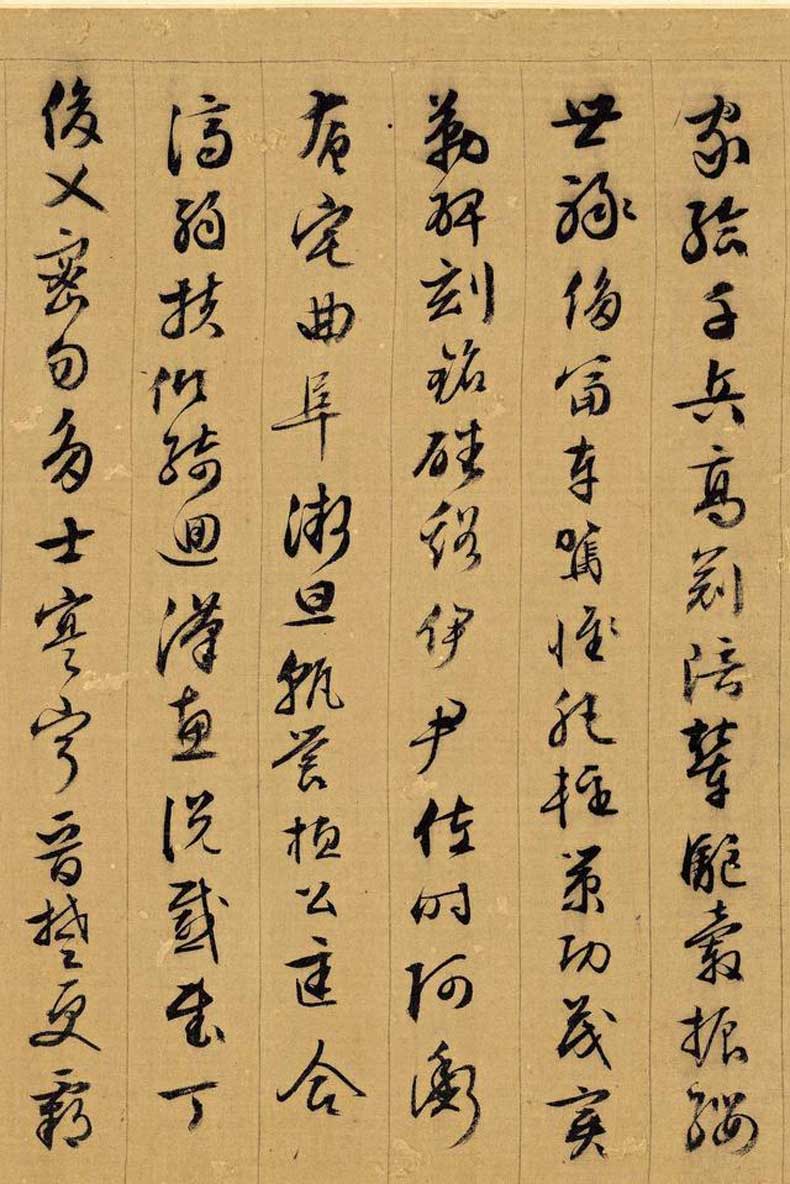 家給千兵高冠陪輦驅轂振纓
世祿侈富車駕惟肥輕策功茂實
勒碑刻銘磻谿伊尹佐時阿衡
奄宅曲阜微旦孰營桓公匡合
濟弱扶傾綺迴漢惠說感武丁
俊乂密勿多士寔寧晉楚更霸